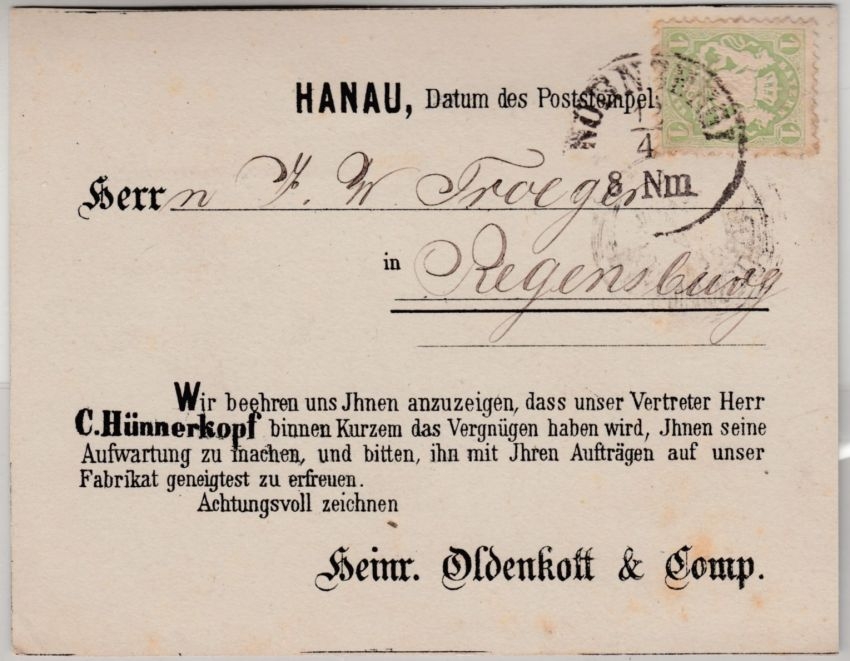 HANAU, Datum des Poststempel
1 BAYERN 1
1 1
NÜRNBERG I
12
4
8 Nm
Herrn F. W. Troeger
in Regensburg
Wir beehren uns Jhnen anzuzeigen, dass unser Vertreter Herr
C. Hünnerkopf binnen Kurzem das Vergnügen haben wird, Jhnen seine
Aufwartung zu machen, und bitten, ihn mit Jhren Aufträgen auf unser
Fabrikat geneigtest zu erfreuen.
Achtungsvoll zeichnen
Heinr. Oldenkott & Comp.